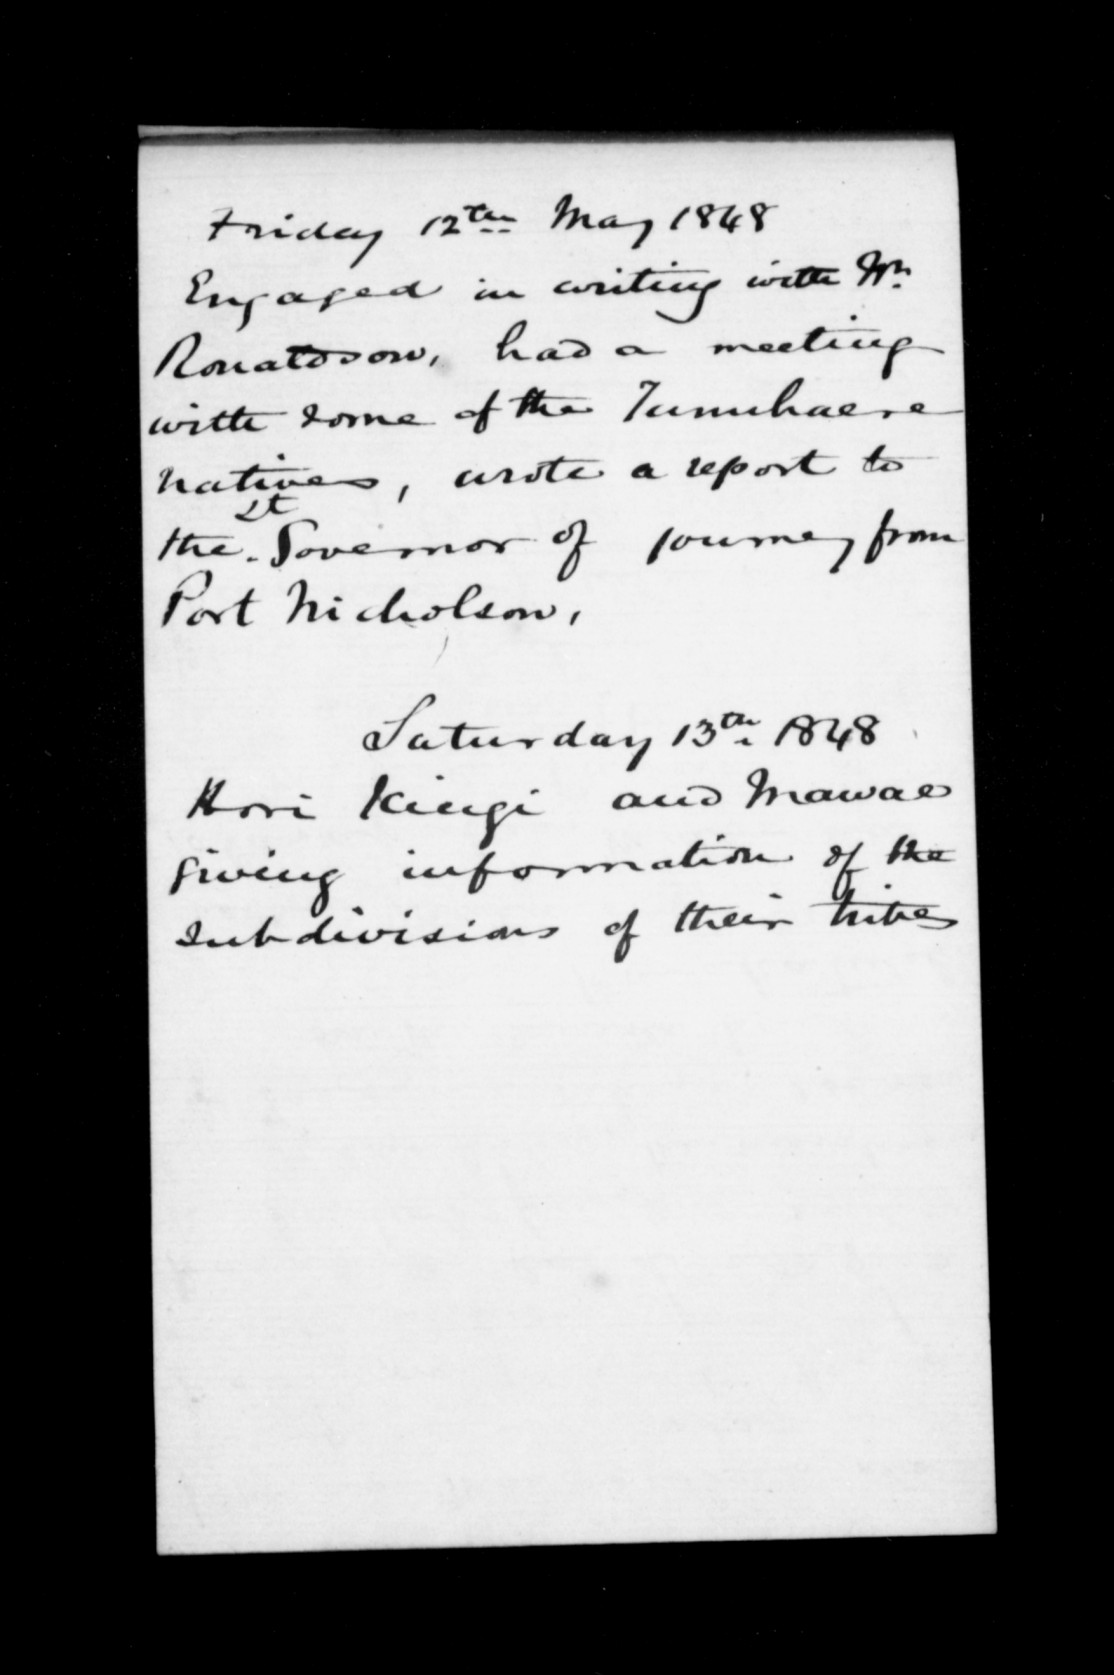 Friday 12th May 1848
Engaged in writing with Mr.
Ronaldson, had a meeting
with some of the Tumuhaere
natives, wrote a report to
the Lt. Governor of journey from
Port Nicholson,
Saturday 13th 1848
Hori Kingi and Mawae
giving information of the
subdivisions of their tribes